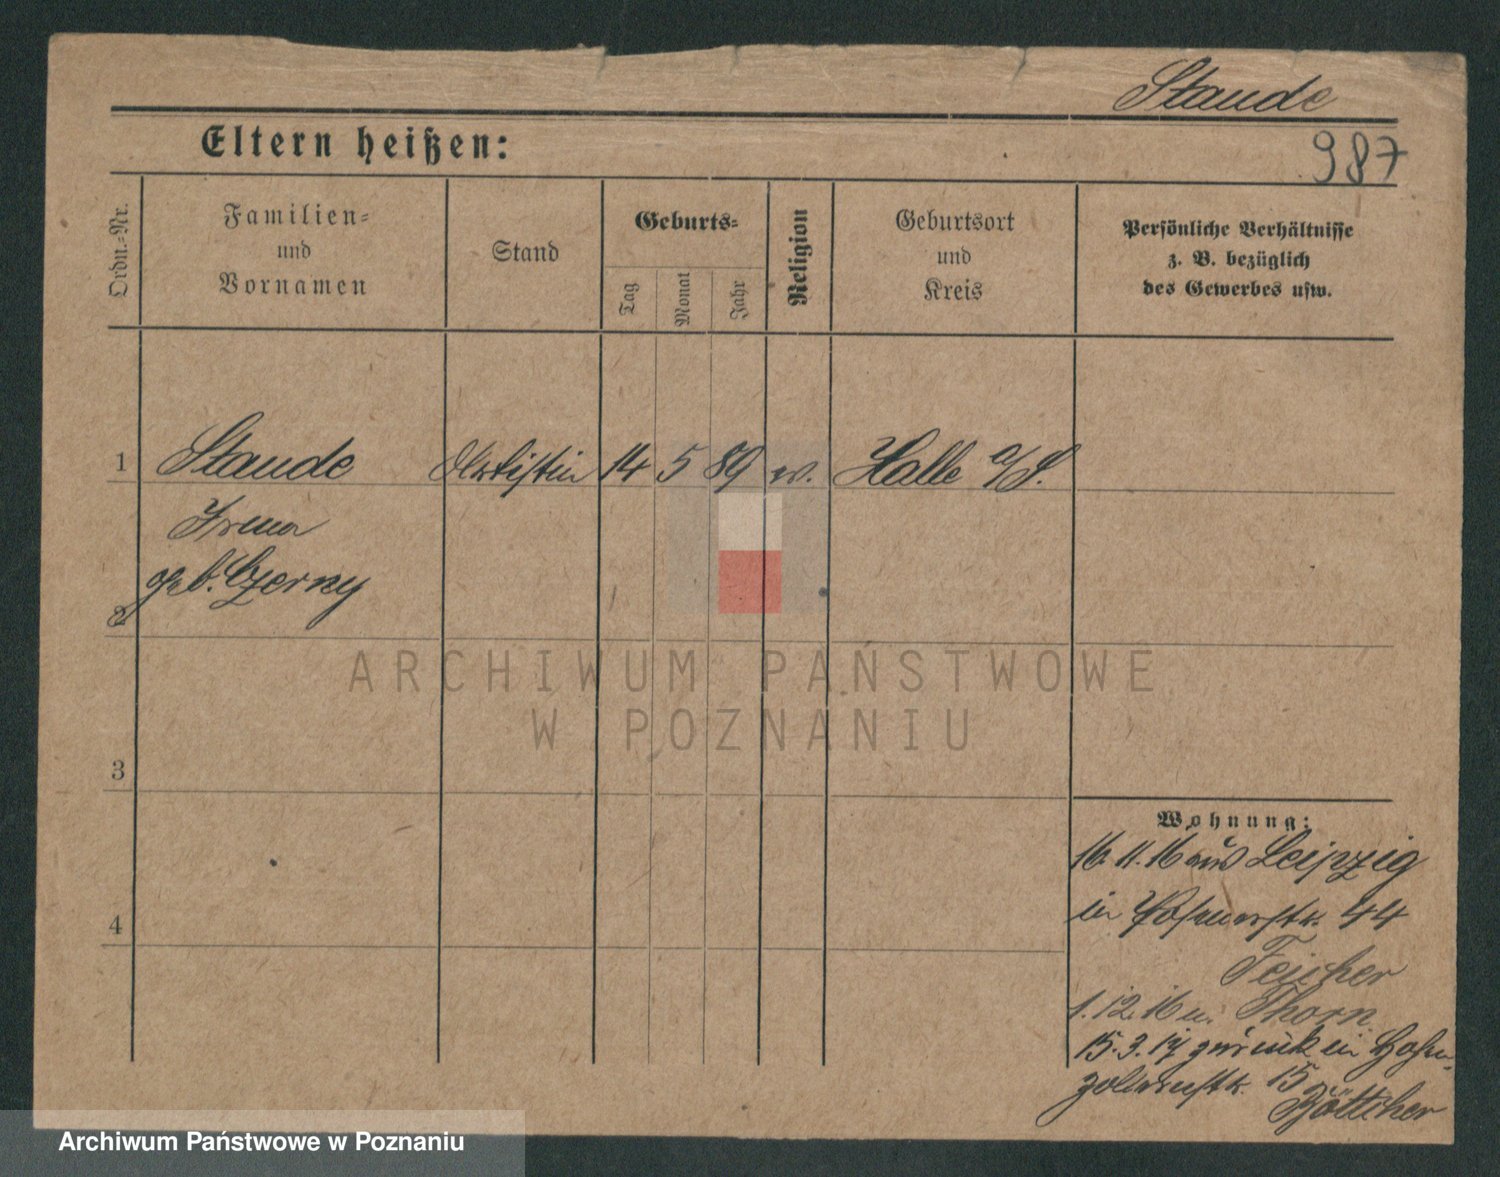 Staude
Eltern heißen:
987
Ordn.-Nr.
Familien-
und
Vornamen
Stand
Geburts-
Tag
Monat
Jahr
Religion
Geburtsort
und
Kreis
Persönliche Verhältnisse
z. B. bezüglich
des Gewerbes usw.
1
Staude
Artistin
14
5
89
ev.
Halle a/S.
Irena
geb. Czerny
2
ARCHIWUM PAŃSTWOWE
W POZNANIU
3
4
Wohnung:
16. 11. 16 aus Leipzig
in Posenerstr. 44
1. 12. 16 n. Thorn
15. 3. 17 zurück in Hohen-
zollernstr. 15
Böttcher
Archiwum Państwowe w Poznaniu